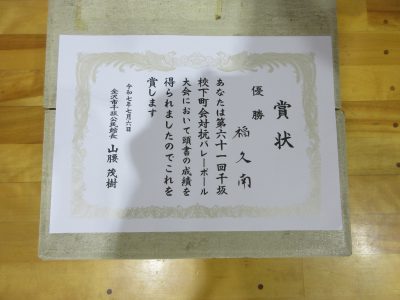 賞状
優勝
福久南
あなたは第六十一回千坂
校下町会対抗バレーボール
大会において頭書の成績を
得られましたのでこれを
賞します
令和七年七月六日
金沢市千坂公民館長
山腰茂樹